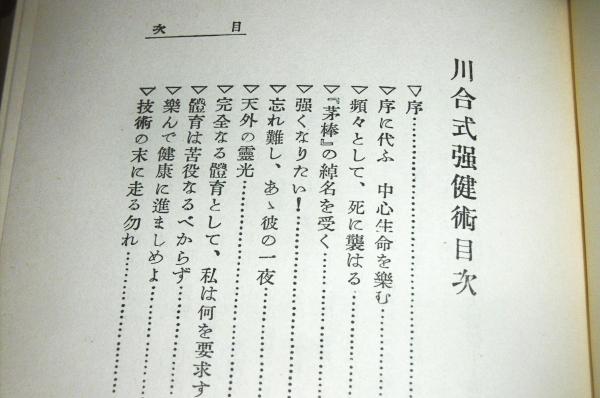 目次
川合式强健術目次
▽序
▽序に代ふ 中心生命を樂む
▽頻々として、死に襲はる
▽『茅棒』の綽名を受く
▽强くなりたい！
▽忘れ難し、あゝ彼の一夜
▽天外の靈光
▽完全なる體育として、私は何を要求す
▽體育は苦役なるべからず
▽樂んで健康に進ましめよ
▽技術の末に走る勿れ